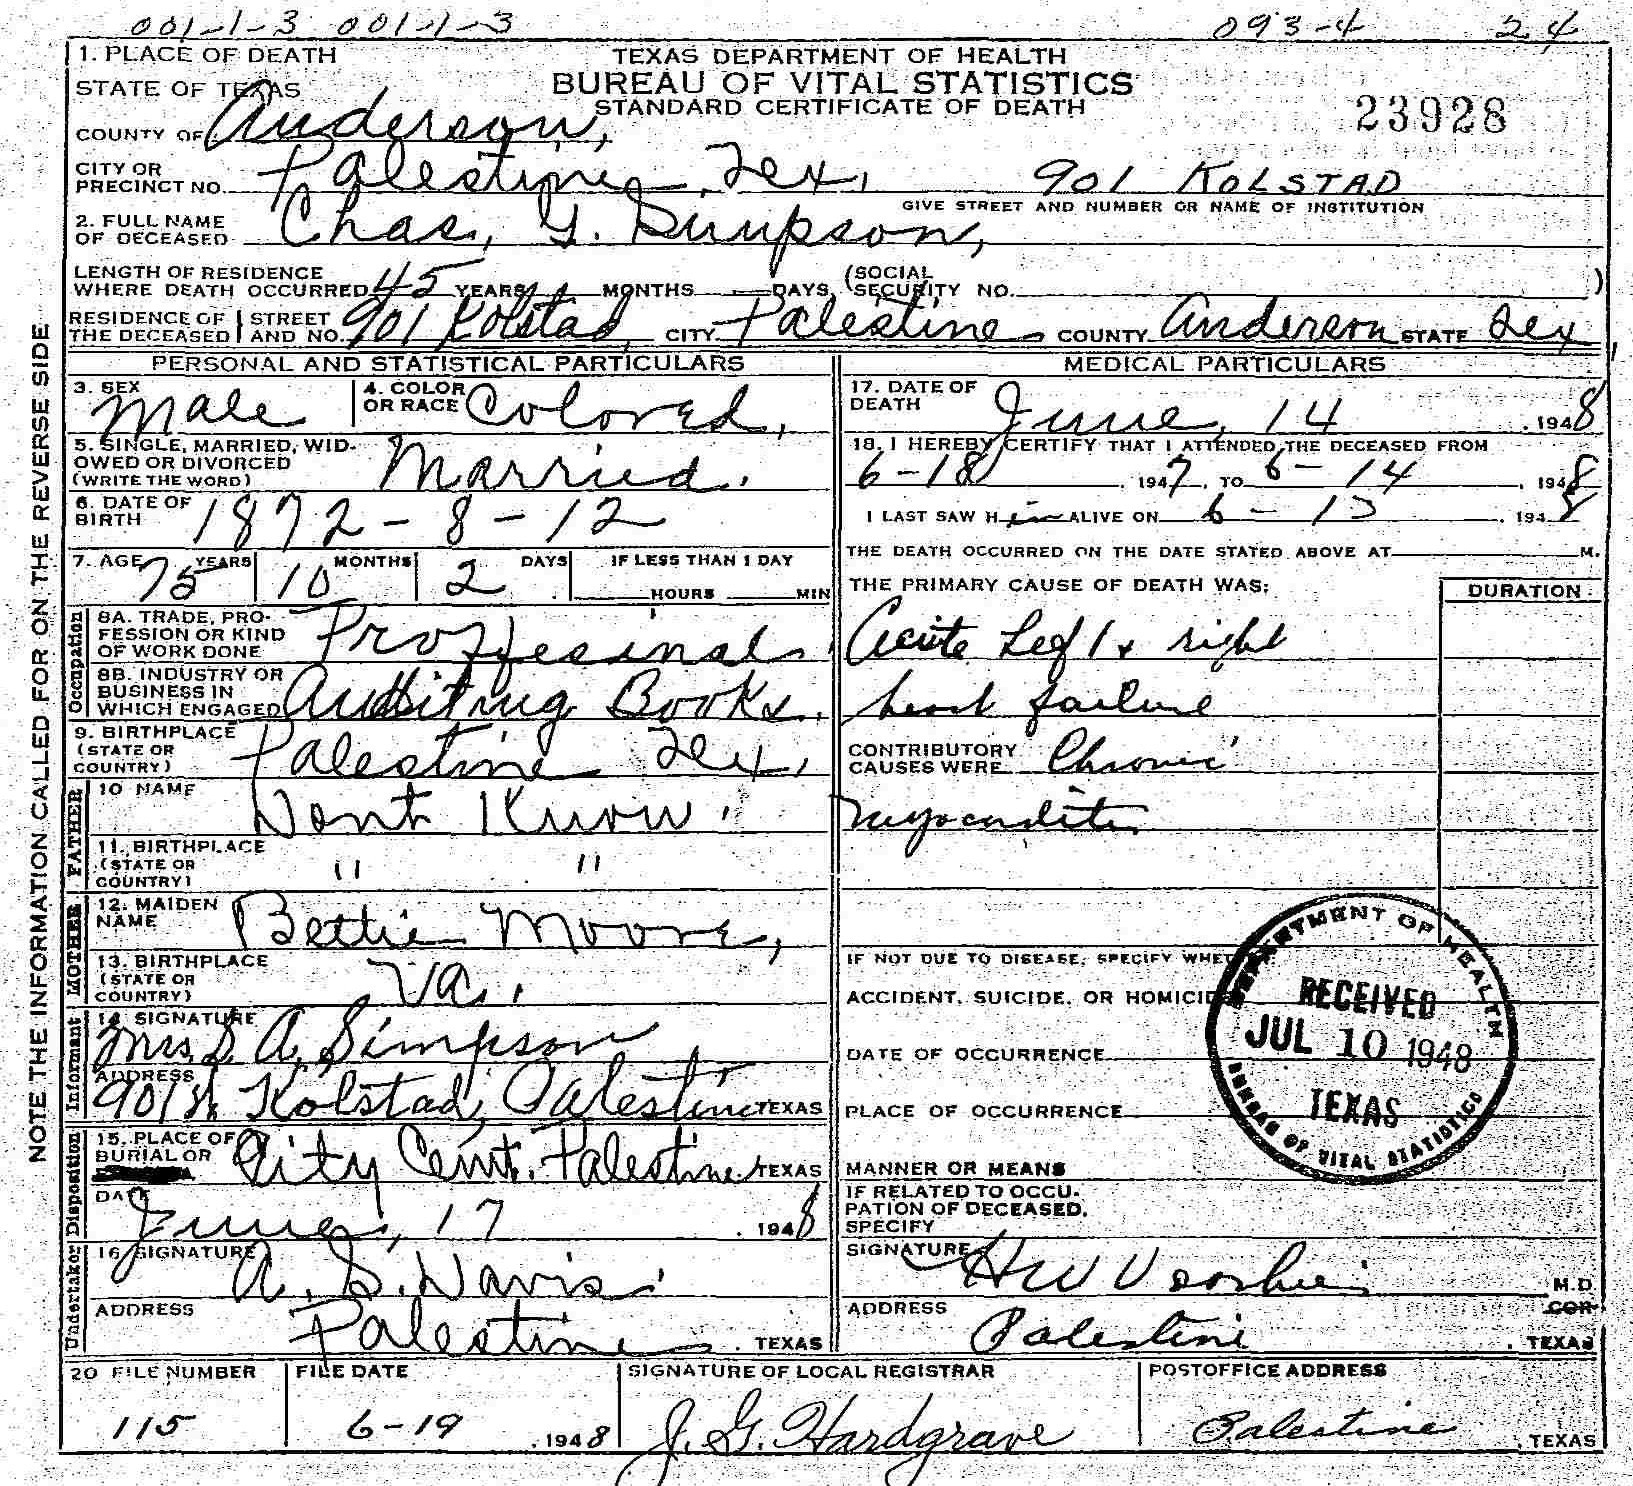 001-1-3 001-1-3 093-4 24
1. PLACE OF DEATH
STATE OF TEXAS
TEXAS DEPARTMENT OF HEALTH
BUREAU OF VITAL STATISTICS
STANDARD CERTIFICATE OF DEATH
23928
COUNTY OF Anderson,
CITY OR PRECINCT NO. Palestine, Tex, 901 KOLSTAD
GIVE STREET AND NUMBER OR NAME OF INSTITUTION
2. FULL NAME OF DECEASED Chas, G. Simpson,
LENGTH OF RESIDENCE WHERE DEATH OCCURRED 45 YEARS MONTHS DAYS (SOCIAL SECURITY NO. )
RESIDENCE OF THE DECEASED STREET AND NO. 901 Kolstad, CITY Palestine COUNTY Anderson STATE Tex,
NOTE THE INFORMATION CALLED FOR ON THE REVERSE SIDE
PERSONAL AND STATISTICAL PARTICULARS
3. SEX Male 4. COLOR OR RACE Colored,
5. SINGLE, MARRIED, WIDOWED OR DIVORCED (WRITE THE WORD) Married.
6. DATE OF BIRTH 1872-8-12
7. AGE 75 YEARS 10 MONTHS 2 DAYS IF LESS THAN 1 DAY HOURS MIN
Occupation
8A. TRADE, PROFESSION OR KIND OF WORK DONE Proffesinal
8B. INDUSTRY OR BUSINESS IN WHICH ENGAGED Auditing Books.
9. BIRTHPLACE (STATE OR COUNTRY) Palestine Tex,
FATHER
10 NAME Dont Know.
11. BIRTHPLACE (STATE OR COUNTRY) " "
MOTHER
12. MAIDEN NAME Bettie Moore,
13. BIRTHPLACE (STATE OR COUNTRY) Va,.
Informant
14. SIGNATURE Mrs S. A. Simpson
ADDRESS 901 Kolstad, Palestine TEXAS
Disposition
15. PLACE OF BURIAL OR City Cemt. Palestine TEXAS
DATE June, 17 . 1948
Undertaker
16 SIGNATURE A. S. Davis.
ADDRESS Palestine . TEXAS
MEDICAL PARTICULARS
17. DATE OF DEATH June, 14 . 1948
18. I HEREBY CERTIFY THAT I ATTENDED THE DECEASED FROM
6-18 . 1947, TO 6-14 , 1948
I LAST SAW Him ALIVE ON 6-13 . 1948
THE DEATH OCCURRED ON THE DATE STATED ABOVE AT M.
THE PRIMARY CAUSE OF DEATH WAS: DURATION
Acute Left & right
heart failure
CONTRIBUTORY CAUSES WERE Chronic
myocarditis
IF NOT DUE TO DISEASE, SPECIFY WHET
ACCIDENT, SUICIDE, OR HOMICIDE
DATE OF OCCURRENCE
PLACE OF OCCURRENCE
MANNER OR MEANS
IF RELATED TO OCCUPATION OF DECEASED, SPECIFY
SIGNATURE HW Voorhies M.D.
COR
ADDRESS Palestine . TEXAS
DEPARTMENT OF HEALTH
RECEIVED
JUL 10 1948
TEXAS
BUREAU OF VITAL STATISTICS
20 FILE NUMBER FILE DATE SIGNATURE OF LOCAL REGISTRAR POSTOFFICE ADDRESS
115 6-19 . 1948 J. G. Hardgrave Palestine , TEXAS